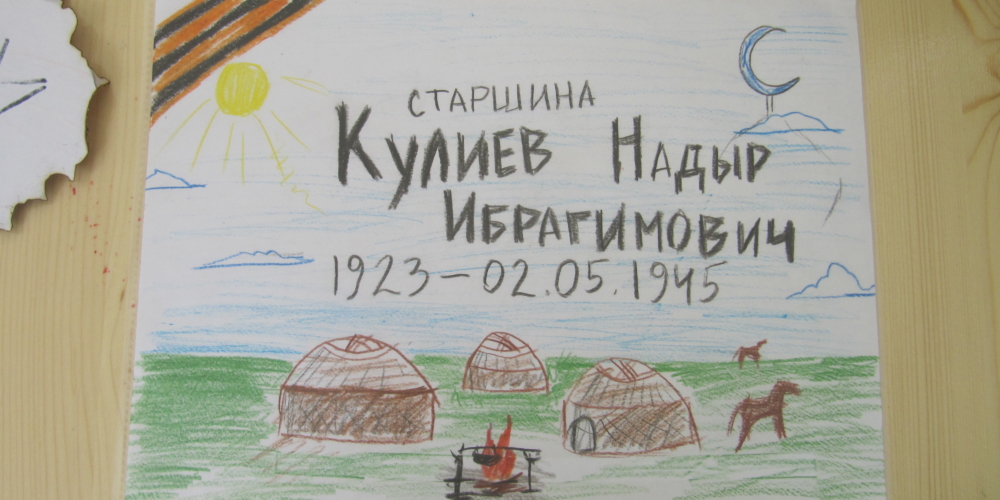 СТАРШИНА
КУЛИЕВ НАДЫР
ИБРАГИМОВИЧ
1923-02.05.1945